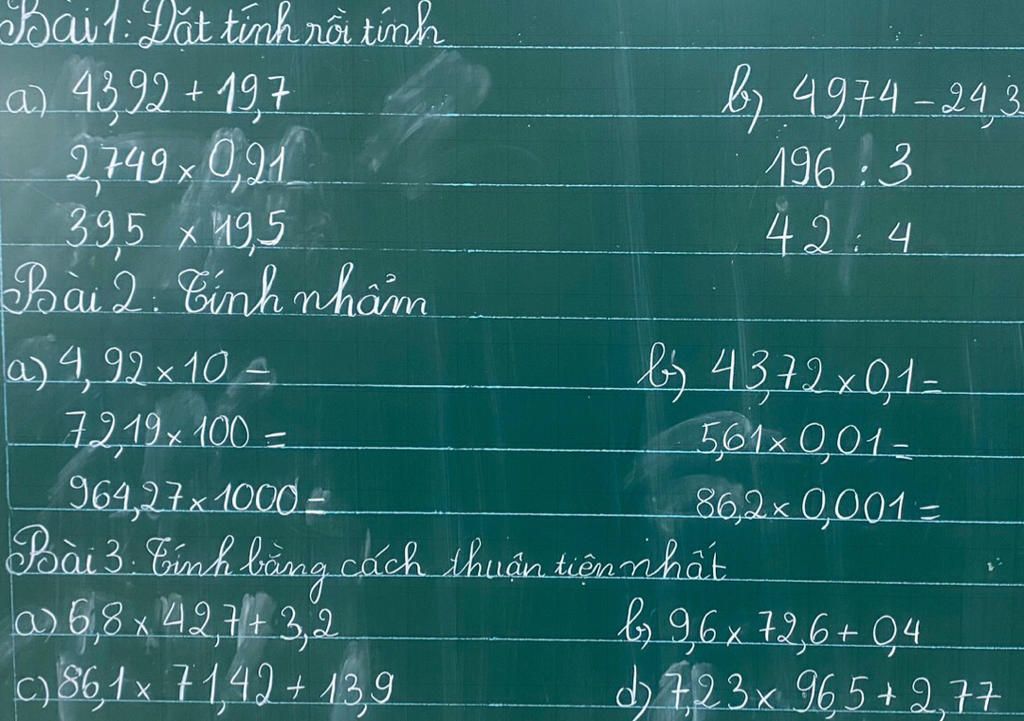 Bài 1: Đặt tính rồi tính
a) 43,92 + 19,7 b) 49,74 - 24,3
2,749 x 0,21 196 : 3
39,5 x 19,5 42 : 4
Bài 2: Tính nhẩm
a) 4,92 x 10 = b) 43,72 x 0,1 =
72,19 x 100 = 5,61 x 0,01 =
964,27 x 1000 = 86,2 x 0,001 =
Bài 3: Tính bằng cách thuận tiện nhất
a) 6,8 x 42,7 + 3,2 b) 9,6 x 72,6 + 0,4
c) 86,1 x 71,42 + 13,9 d) 7,23 x 96,5 + 2,77